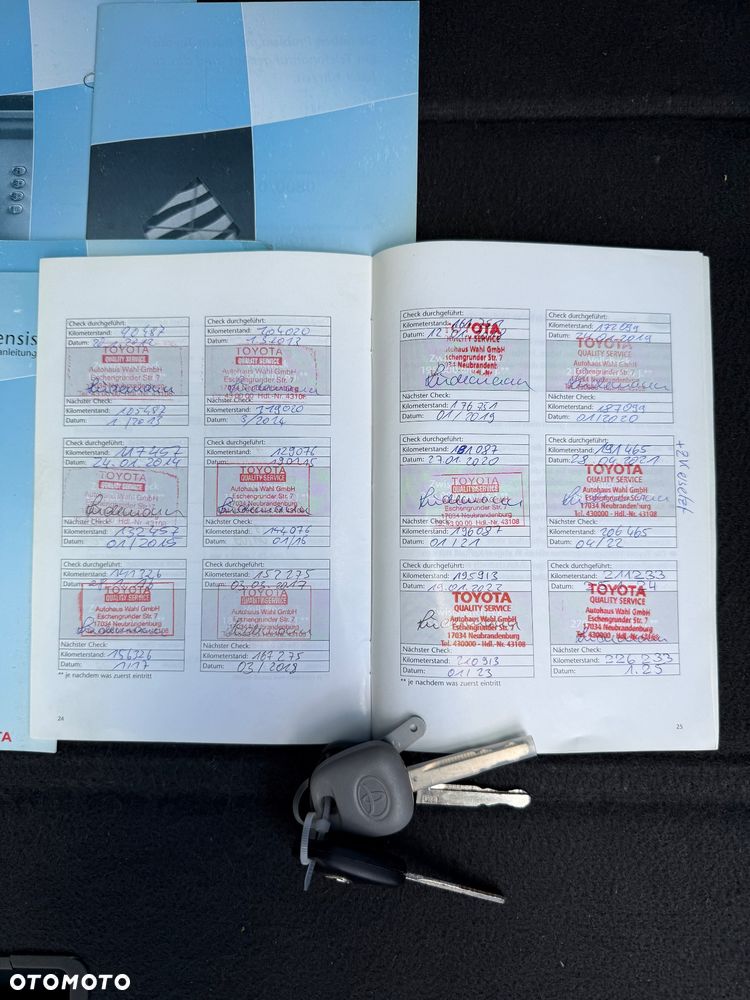 ensis
anleitung
TA
Check durchgeführt:
Kilometerstand: 90487
Datum:
TOYOTA
QUALITY SERVICE
Autohaus Wahl GmbH
Eschengrunder Str. 7
Nächster Check:
Kilometerstand: 105487
Datum: 1./2013
Check durchgeführt:
Kilometerstand: 104020
Datum: 1.3.2013
TOYOTA
QUALITY SERVICE
Autohaus Wahl GmbH
Eschengrunder Str. 7
43 00 00 Hdl.-Nr. 43108
Nächster Check:
Kilometerstand: 119020
Datum: 3/2014
Check durchgeführt:
Kilometerstand: 117457
Datum: 24.01.2014
TOYOTA
Autohaus Wahl GmbH
Nächster Check:
Kilometerstand: 132457
Datum: 01/2015
Check durchgeführt:
Kilometerstand: 129076
Datum:
TOYOTA
QUALITY SERVICE
Autohaus Wahl GmbH
Eschengrunder Str. 7
17034 Neubrandenburg
Hdl.-Nr. 43108
Nächster Check:
Kilometerstand: 144076
Datum: 01/15
Check durchgeführt:
Kilometerstand: 141326
Datum:
TOYOTA
QUALITY SERVICE
Autohaus Wahl GmbH
Eschengrunder Str. 7
17034 Neubrandenburg
Nächster Check:
Kilometerstand: 156326
Datum: 1/17
Check durchgeführt:
Kilometerstand: 152275
Datum: 03.03.2017
TOYOTA
QUALITY SERVICE
Autohaus Wahl GmbH
Eschengrunder Str. 7
17034 Neubrandenburg
Nächster Check:
Kilometerstand: 167275
Datum: 03/2018
** je nachdem was zuerst eintritt
24
Check durchgeführt:
Kilometerstand:
Datum:
QUALITY SERVICE
Autohaus Wahl GmbH
Eschengrunder Str. 7
Nächster Check:
Kilometerstand: 176751
Datum: 01/2019
Check durchgeführt:
Kilometerstand: 172099
Datum: 24.01.2019
TOYOTA
QUALITY SERVICE
Autohaus Wahl GmbH
Eschengrunder Str. 7
Nächster Check:
Kilometerstand: 187099
Datum: 01/2020
Check durchgeführt:
Kilometerstand: 181087
Datum: 27.01.2020
TOYOTA
QUALITY SERVICE
Autohaus Wahl GmbH
Eschengrunder Str. 7
17034 Neubrandenburg
43 00 00 Hdl.-Nr. 43108
Nächster Check:
Kilometerstand: 196087
Datum: 01/21
Check durchgeführt:
Kilometerstand: 191465
Datum: 28.04.2021
TOYOTA
QUALITY SERVICE
Autohaus Wahl GmbH
Eschengrunder Str. 7
17034 Neubrandenburg
Tel. 430000 - Hdl.-Nr. 43108
Nächster Check:
Kilometerstand: 206465
Datum: 04/22
Check durchgeführt:
Kilometerstand: 195913
Datum: 19.01.2022
TOYOTA
QUALITY SERVICE
Autohaus Wahl GmbH
Eschengrunder Str. 7
17034 Neubrandenburg
Tel. 430000 - Hdl.-Nr. 43108
Nächster Check:
Kilometerstand: 210913
Datum: 01/23
Check durchgeführt:
Kilometerstand: 211233
Datum:
TOYOTA
QUALITY SERVICE
Autohaus Wahl GmbH
Eschengrunder Str. 7
17034 Neubrandenburg
Tel. 430000 - Hdl.-Nr. 43108
Nächster Check:
Kilometerstand: 226233
Datum: 1.25
** je nachdem was zuerst eintritt
25
OTOMOTO